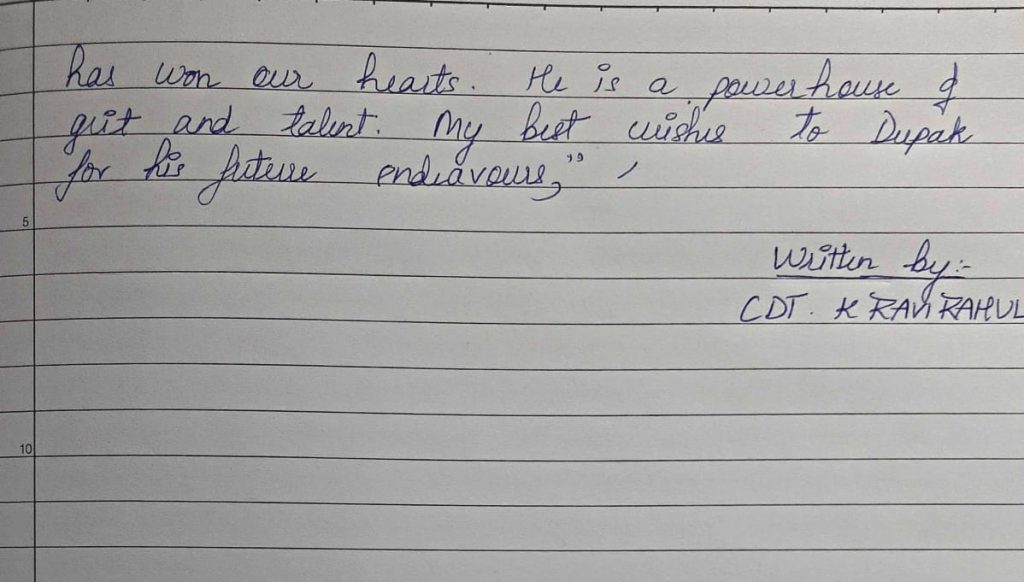 has won our hearts. He is a powerhouse of
grit and talent. My best wishes to Deepak
for his future endeavours,”
5
Written by:-
CDT. K RAVI RAHUL
10